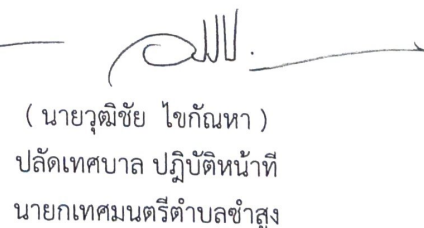 ( นายวุฒิชัย ไขกัณหา )
ปลัดเทศบาล ปฏิบัติหน้าที่
นายกเทศมนตรีตำบลซำสูง